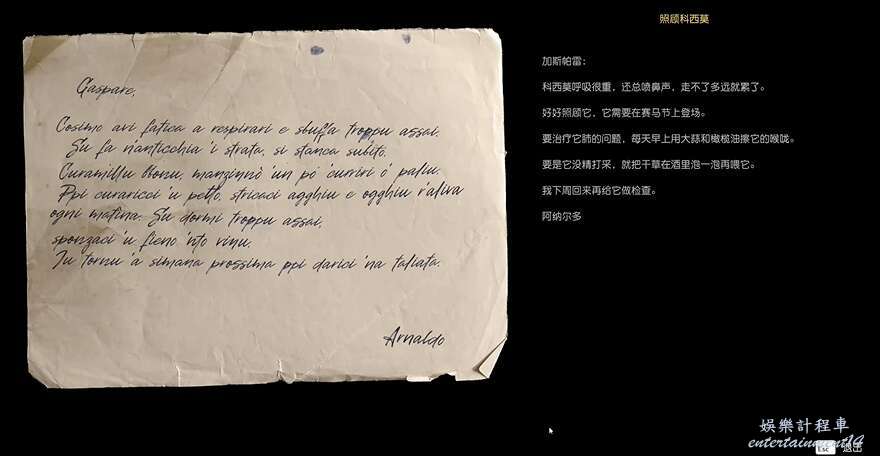 Gaspare,
Cosimo avi fatica a respirari e sbuffa troppu assai.
Su fa n'anticchia 'i strata, si stanca subito.
Curamillu bonu, manzinnò 'un pò curriri ô paliu.
Ppi curaricci 'u petto, stricaci agghiu e ogghiu r'aliva
ogni matina. Su dormi troppu assai,
sponzaci 'u fieno 'nto vinu.
Iu tornu 'a simana prossima ppi darici 'na taliata.
Arnaldo
照顾科西莫
加斯帕雷：
科西莫呼吸很重，还总喷鼻声，走不了多远就累了。
好好照顾它，它需要在赛马节上登场。
要治疗它肺的问题，每天早上用大蒜和橄榄油擦它的喉咙。
要是它没精打采，就把干草在酒里泡一泡再喂它。
我下周回来再给它做检查。
阿纳尔多
娛樂計程車
entertainment14
Esc 退出